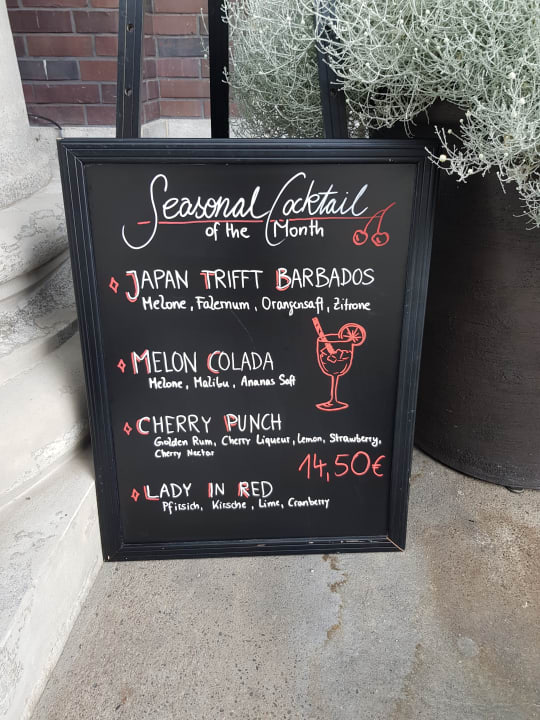 Seasonal Cocktail
of the Month
JAPAN TRIFFT BARBADOS
Melone, Falernum, Orangensaft, Zitrone
MELON COLADA
Melone, Malibu, Ananas Saft
CHERRY PUNCH
Golden Rum, Cherry Liqueur, Lemon, Strawberry,
Cherry Nectar
14,50€
LADY IN RED
Pfirsich, Kirsche, Lime, Cranberry